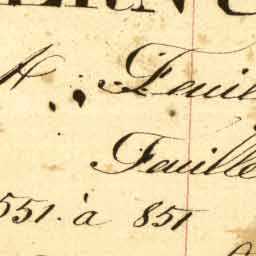 A. Feuil
Feuille
551. à 851